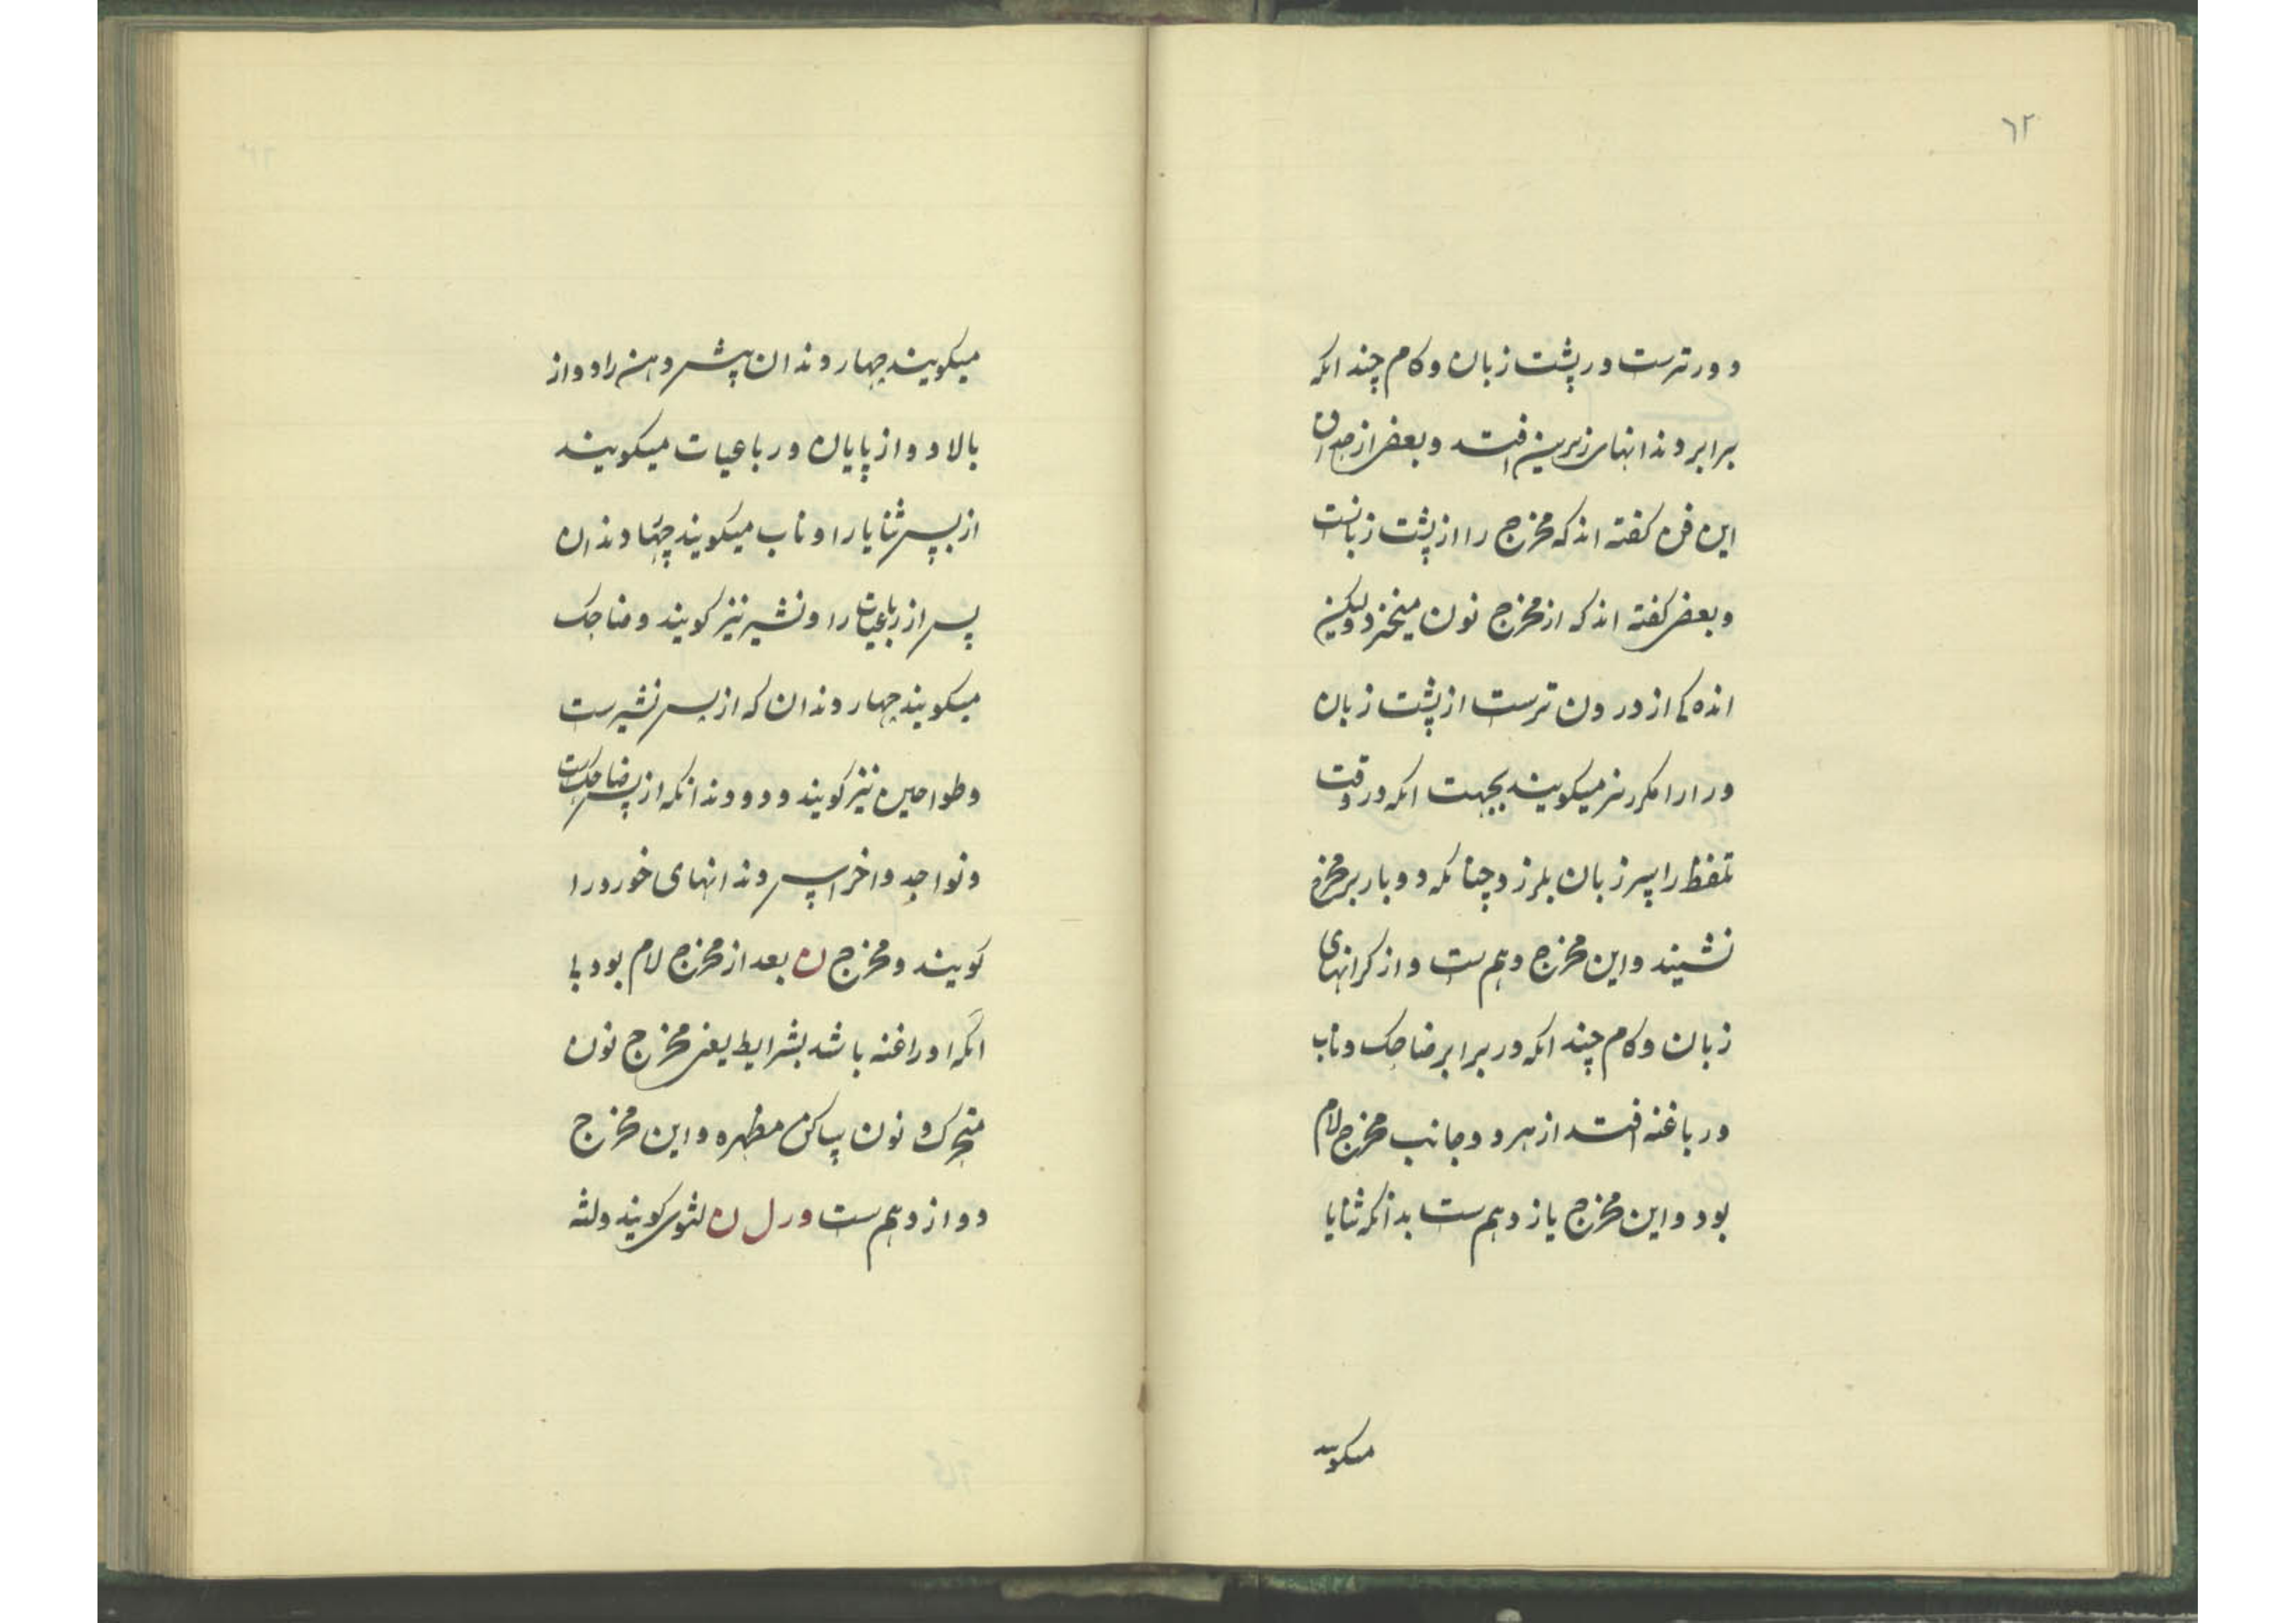 ٦٢
دورترست در پشت زبان و کام چندانکه
برابر دندانهای زیرین افتد و بعضی از
این فن گفته اند که مخرج را از پشت زبانست
و بعضی گفته اند که از مخرج نون میخیزد ولیکن
اندکی از درون ترست از پشت زبان
و را را مکرر نیز میکویند بجهت انکه در وقت
تلفظ را سر زبان بلرزد چنانکه دو بار بر مخرج
نشیند و این مخرج دهم ست و از کرانهای
زبان و کام چندانکه در برابر ضاحک و ناب
و رباعیه افتد از هر دو جانب مخرج لام
بود و این مخرج یازدهم ست بدانکه ثنایا
میکویند
میکویند چهار دندان پیش دهن را دو از
بالا دو از پایان و رباعیات میکویند
از پس ثنایا را و ناب میکویند چهار دندان
پس از رباعیات را و نشیر نیز کویند و ضاحک
میکویند چهار دندان که از پس نشیرست
و طواحین نیز کویند و دو دندانکه از پس ضاحکست
و نواجد و اخر اس دندانهای خورد را
کویند و مخرج ن بعد از مخرج لام بود با
انکه او را غنه باشد بشرایط یعنی مخرج نون
متحرک و نون ساکن مظهره و این مخرج
دوازدهم ست و ر ل ن لثوی کویند و لثه